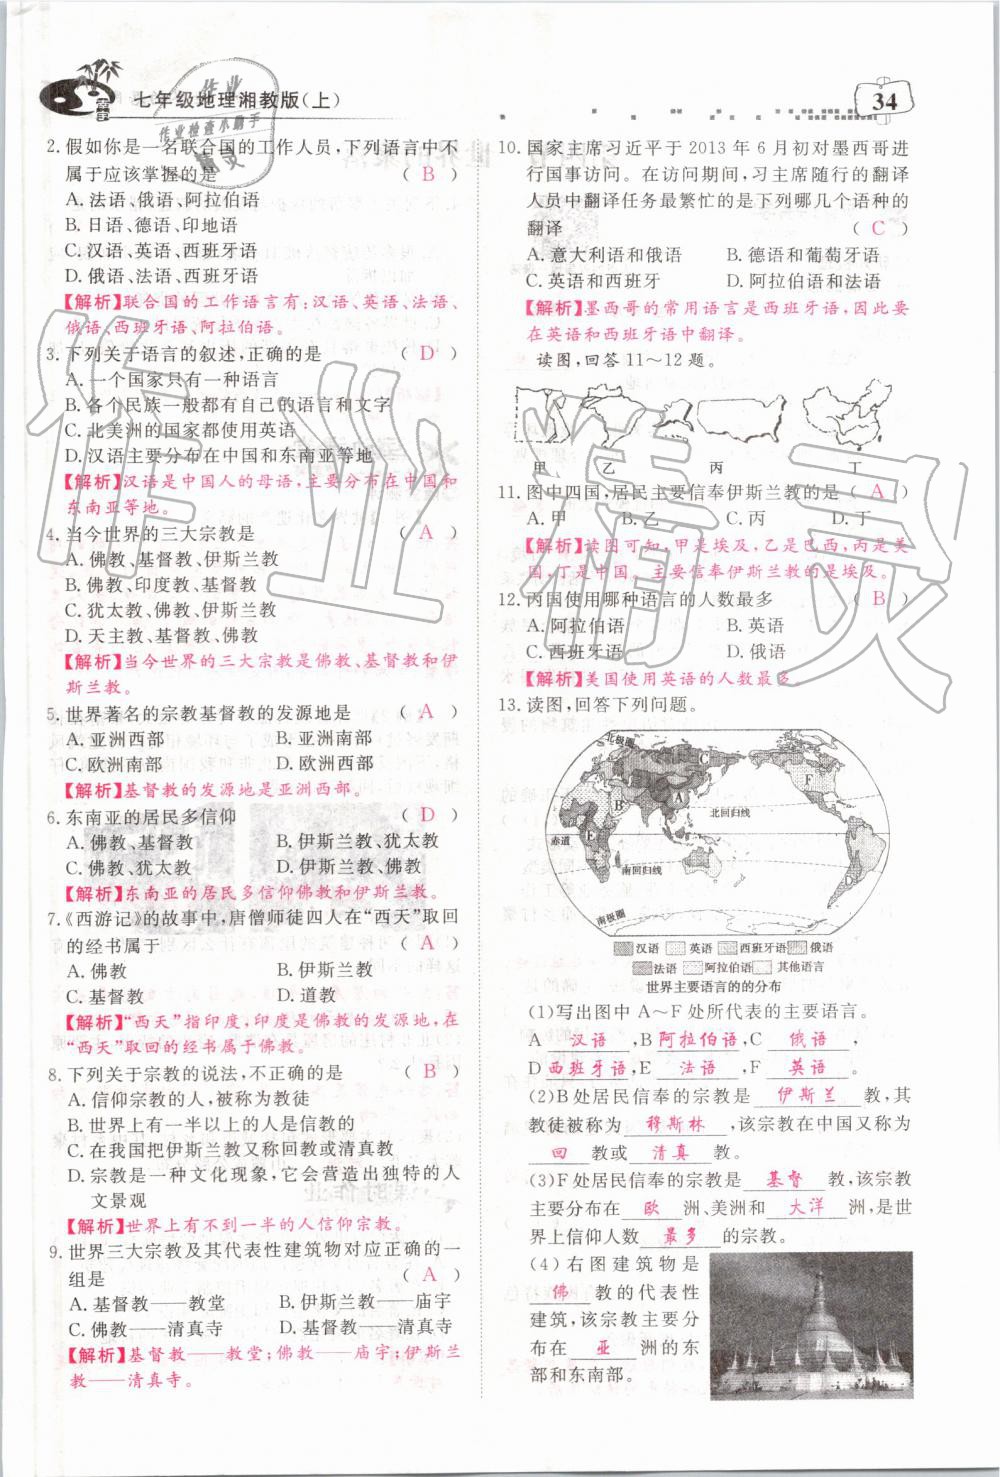 七年级地理湘教版(上)
34
2. 假如你是一名联合国的工作人员,下列语言中不
属于应该掌握的是 ( B )
A. 法语、俄语、阿拉伯语
B. 日语、德语、印地语
C. 汉语、英语、西班牙语
D. 俄语、法语、西班牙语
【解析】联合国的工作语言有:汉语、英语、法语、
俄语、西班牙语、阿拉伯语。
3. 下列关于语言的叙述,正确的是 ( D )
A. 一个国家只有一种语言
B. 各个民族一般都有自己的语言和文字
C. 北美洲的国家都使用英语
D. 汉语主要分布在中国和东南亚等地
【解析】汉语是中国人的母语,主要分布在中国和
东南亚等地。
4. 当今世界的三大宗教是 ( A )
A. 佛教、基督教、伊斯兰教
B. 佛教、印度教、基督教
C. 犹太教、佛教、伊斯兰教
D. 天主教、基督教、佛教
【解析】当今世界的三大宗教是佛教、基督教和伊
斯兰教。
5. 世界著名的宗教基督教的发源地是 ( A )
A. 亚洲西部 B. 亚洲南部
C. 欧洲南部 D. 欧洲西部
【解析】基督教的发源地是亚洲西部。
6. 东南亚的居民多信仰 ( D )
A. 佛教、基督教 B. 伊斯兰教、犹太教
C. 佛教、犹太教 D. 伊斯兰教、佛教
【解析】东南亚的居民多信仰佛教和伊斯兰教。
7. 《西游记》的故事中,唐僧师徒四人在“西天”取回
的经书属于 ( A )
A. 佛教 B. 伊斯兰教
C. 基督教 D. 道教
【解析】“西天”指印度,印度是佛教的发源地,在
“西天”取回的经书属于佛教。
8. 下列关于宗教的说法,不正确的是 ( B )
A. 信仰宗教的人,被称为教徒
B. 世界上有一半以上的人是信教的
C. 在我国把伊斯兰教又称回教或清真教
D. 宗教是一种文化现象,它会营造出独特的人
文景观
【解析】世界上有不到一半的人信仰宗教。
9. 世界三大宗教及其代表性建筑物对应正确的一
组是 ( A )
A. 基督教——教堂 B. 伊斯兰教——庙宇
C. 佛教——清真寺 D. 基督教——清真寺
【解析】基督教——教堂;佛教——庙宇;伊斯兰
教——清真寺。
10. 国家主席习近平于 2013 年 6 月初对墨西哥进
行国事访问。在访问期间,习主席随行的翻译
人员中翻译任务最繁忙的是下列哪几个语种的
翻译 ( C )
A. 意大利语和俄语 B. 德语和葡萄牙语
C. 英语和西班牙 D. 阿拉伯语和法语
【解析】墨西哥的常用语言是西班牙语,因此要
在英语和西班牙语中翻译。
读图,回答11～12题。
甲 乙 丙 丁
11. 图中四国,居民主要信奉伊斯兰教的是 ( A )
A. 甲 B. 乙 C. 丙 D. 丁
【解析】读图可知,甲是埃及,乙是巴西,丙是美
国,丁是中国。主要信奉伊斯兰教的是埃及。
12. 丙国使用哪种语言的人数最多 ( B )
A. 阿拉伯语 B. 英语
C. 西班牙语 D. 俄语
【解析】美国使用英语的人数最多。
13. 读图,回答下列问题。
北极圈
C
F
B
A
北回归线
赤道
E
南回归线
D
南极圈
汉语 英语 西班牙语 俄语
法语 阿拉伯语 其他语言
世界主要语言的的分布
(1)写出图中 A～F 处所代表的主要语言。
A 汉语 ,B 阿拉伯语 ,C 俄语 ,
D 西班牙语 ,E 法语 ,F 英语 。
(2)B 处居民信奉的宗教是 伊斯兰 教,其
教徒被称为 穆斯林 ,该宗教在中国又称为
回 教或 清真 教。
(3)F 处居民信奉的宗教是 基督 教,该宗
教主要分布在 欧 洲、美洲和 大洋 洲,是世
界上信仰人数 最多 的宗教。
(4)右图建筑物是
佛 教的代表性
建筑,该宗教主要分
布在 亚 洲的东
部和东南部。
作业
作业检查小助手
精灵
作业精灵